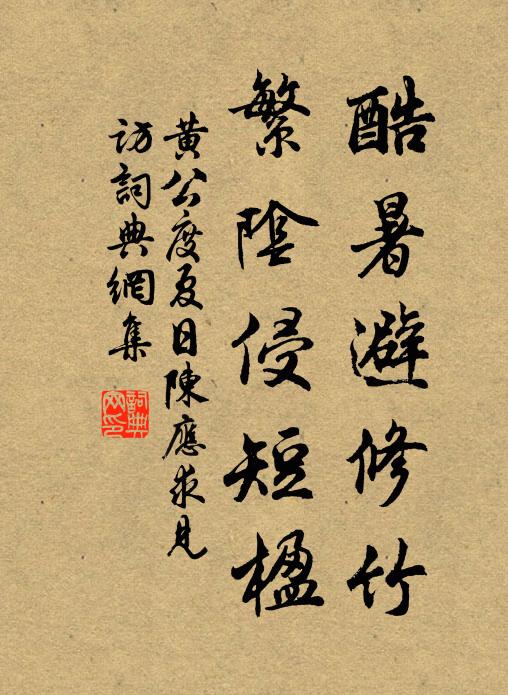 酷暑避修竹
繁陰侵短楹
黃公度夏日陳應求見
訪詞典網集
詞典网印